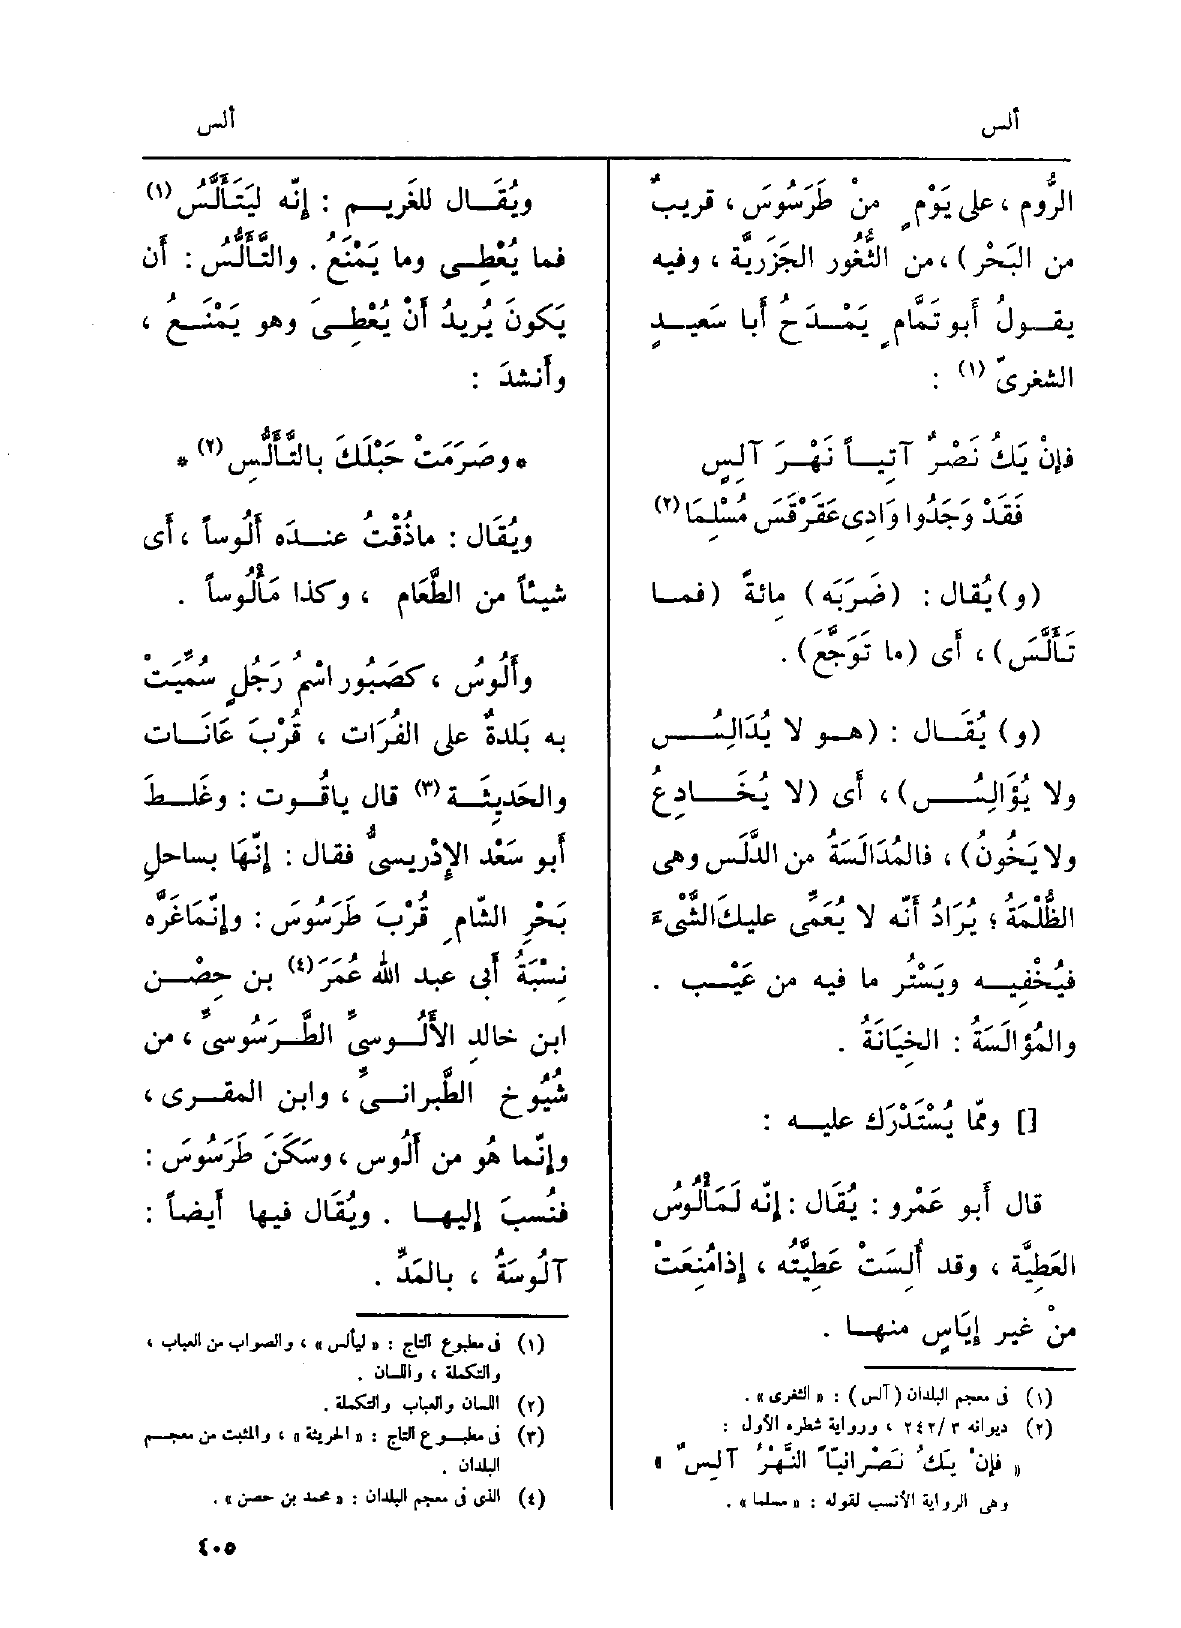 ألس
ألس
الرُّومِ ، على يَوْمٍ مِنْ طَرَسُوسَ ، قريبٌ
من البَحْر) ، من الثُّغُور الجَزَريَّة ، وفيه
يقــولُ أبو تَمَّامٍ يَمْدَحُ أبا سَعيــدٍ
الشغرىّ (١) :
فإنْ يَكُ نَصْرٌ آتيــاً نَهْــرَ آلِسٍ
فَقَدْ وَجَدُوا وَادِى عَقَرْقَسَ مُسْلِمَا (٢)
(و) يُقال : (ضَرَبَه) مِائةً (فمــا
تَأَلَّسَ) ، أى (ما تَوَجَّعَ) .
(و) يُقَــال : (هــو لا يُدَالِــسُ
ولا يُؤَالِــسُ) ، أى (لا يُخَــادِعُ
ولا يَخُونُ) ، فالمُدَالَسَةُ من الدَّلَس وهى
الظُّلْمَةُ ؛ يُرَادُ أنّه لا يُعَمِّى عليكَ الشَّىْءَ
فيُخْفِيــه ويَسْتُر ما فيه من عَيْــب .
والمُؤَالَسَةُ : الخِيَانَةُ .
[] وممّا يُسْتَدْرَك عليــه :
قال أبو عَمْرو : يُقَال : إنّه لَمَأْلُوسُ
العَطِيَّة ، وقد أُلِسَتْ عَطِيَّتُه ، إذا مُنِعَتْ
مِنْ غير إيَاسٍ منهــا .
(١) فى معجم البلدان (آلس) : « الثغرى » .
(٢) ديوانه ٢٤٢/٣ ، ورواية شطره الأول :
« فإن ْ يَك ُ نَصْرانيّاً النَّهْرُ آلِسٌ »
وهى الرواية الأنسب لقوله : « مسلما » .
ويُقَــال للغَريــم : إنّه ليَتَأَلَّسُ (١)
فما يُعْطِــى وما يَمْنَعُ . والتَّأَلُّسُ : أن
يَكونَ يُريدُ أنْ يُعْطِــىَ وهو يَمْنَــعُ ،
وأَنشدَ :
* وصَرَمَتْ حَبْلَكَ بالتَّأَلُّسِ (٢) *
ويُقَال : ماذُقْتُ عنــدَه أَلُوساً ، أى
شيئاً من الطَّعَام ، وكذا مَأْلُوساً .
وأَلُوسُ ، كصَبُور اسْمُ رَجُلٍ سُمِّيَتْ
به بَلدةٌ على الفُرَات ، قُرْبَ عَانَــات
والحَديثَــة (٣) قال ياقُوت : وغَلــطَ
أبو سَعْد الإدْريسىُّ فقال : إنّهَا بساحلِ
بَحْرِ الشّامِ قُرْبَ طَرَسُوسَ : وإنّمَا غَرَّه
نِسْبَةُ أبى عبد الله عُمَرَ (٤) بن حِصْــن
ابن خالد الأَلُــوسىِّ الطَّرَسُوسىِّ ، من
شُيُوخ الطَّبرانــىِّ ، وابن المقــرى ،
وإنّمــا هُو من أَلُوس ، وسَكَنَ طَرَسُوسَ :
فنُسبَ إليهــا . ويُقَال فيهــا أيضاً :
آلُوسَةُ ، بالمَدِّ .
(١) فى مطبوع التاج : « ليألس » ، والصواب من العباب ،
والتكملة ، واللسان .
(٢) اللسان والعباب والتكملة .
(٣) فى مطبــوع التاج : « الحريثة » ، والمثبت من معجــم
البلدان .
(٤) الذى فى معجم البلدان : « محمد بن حصن » .
٤٠٥